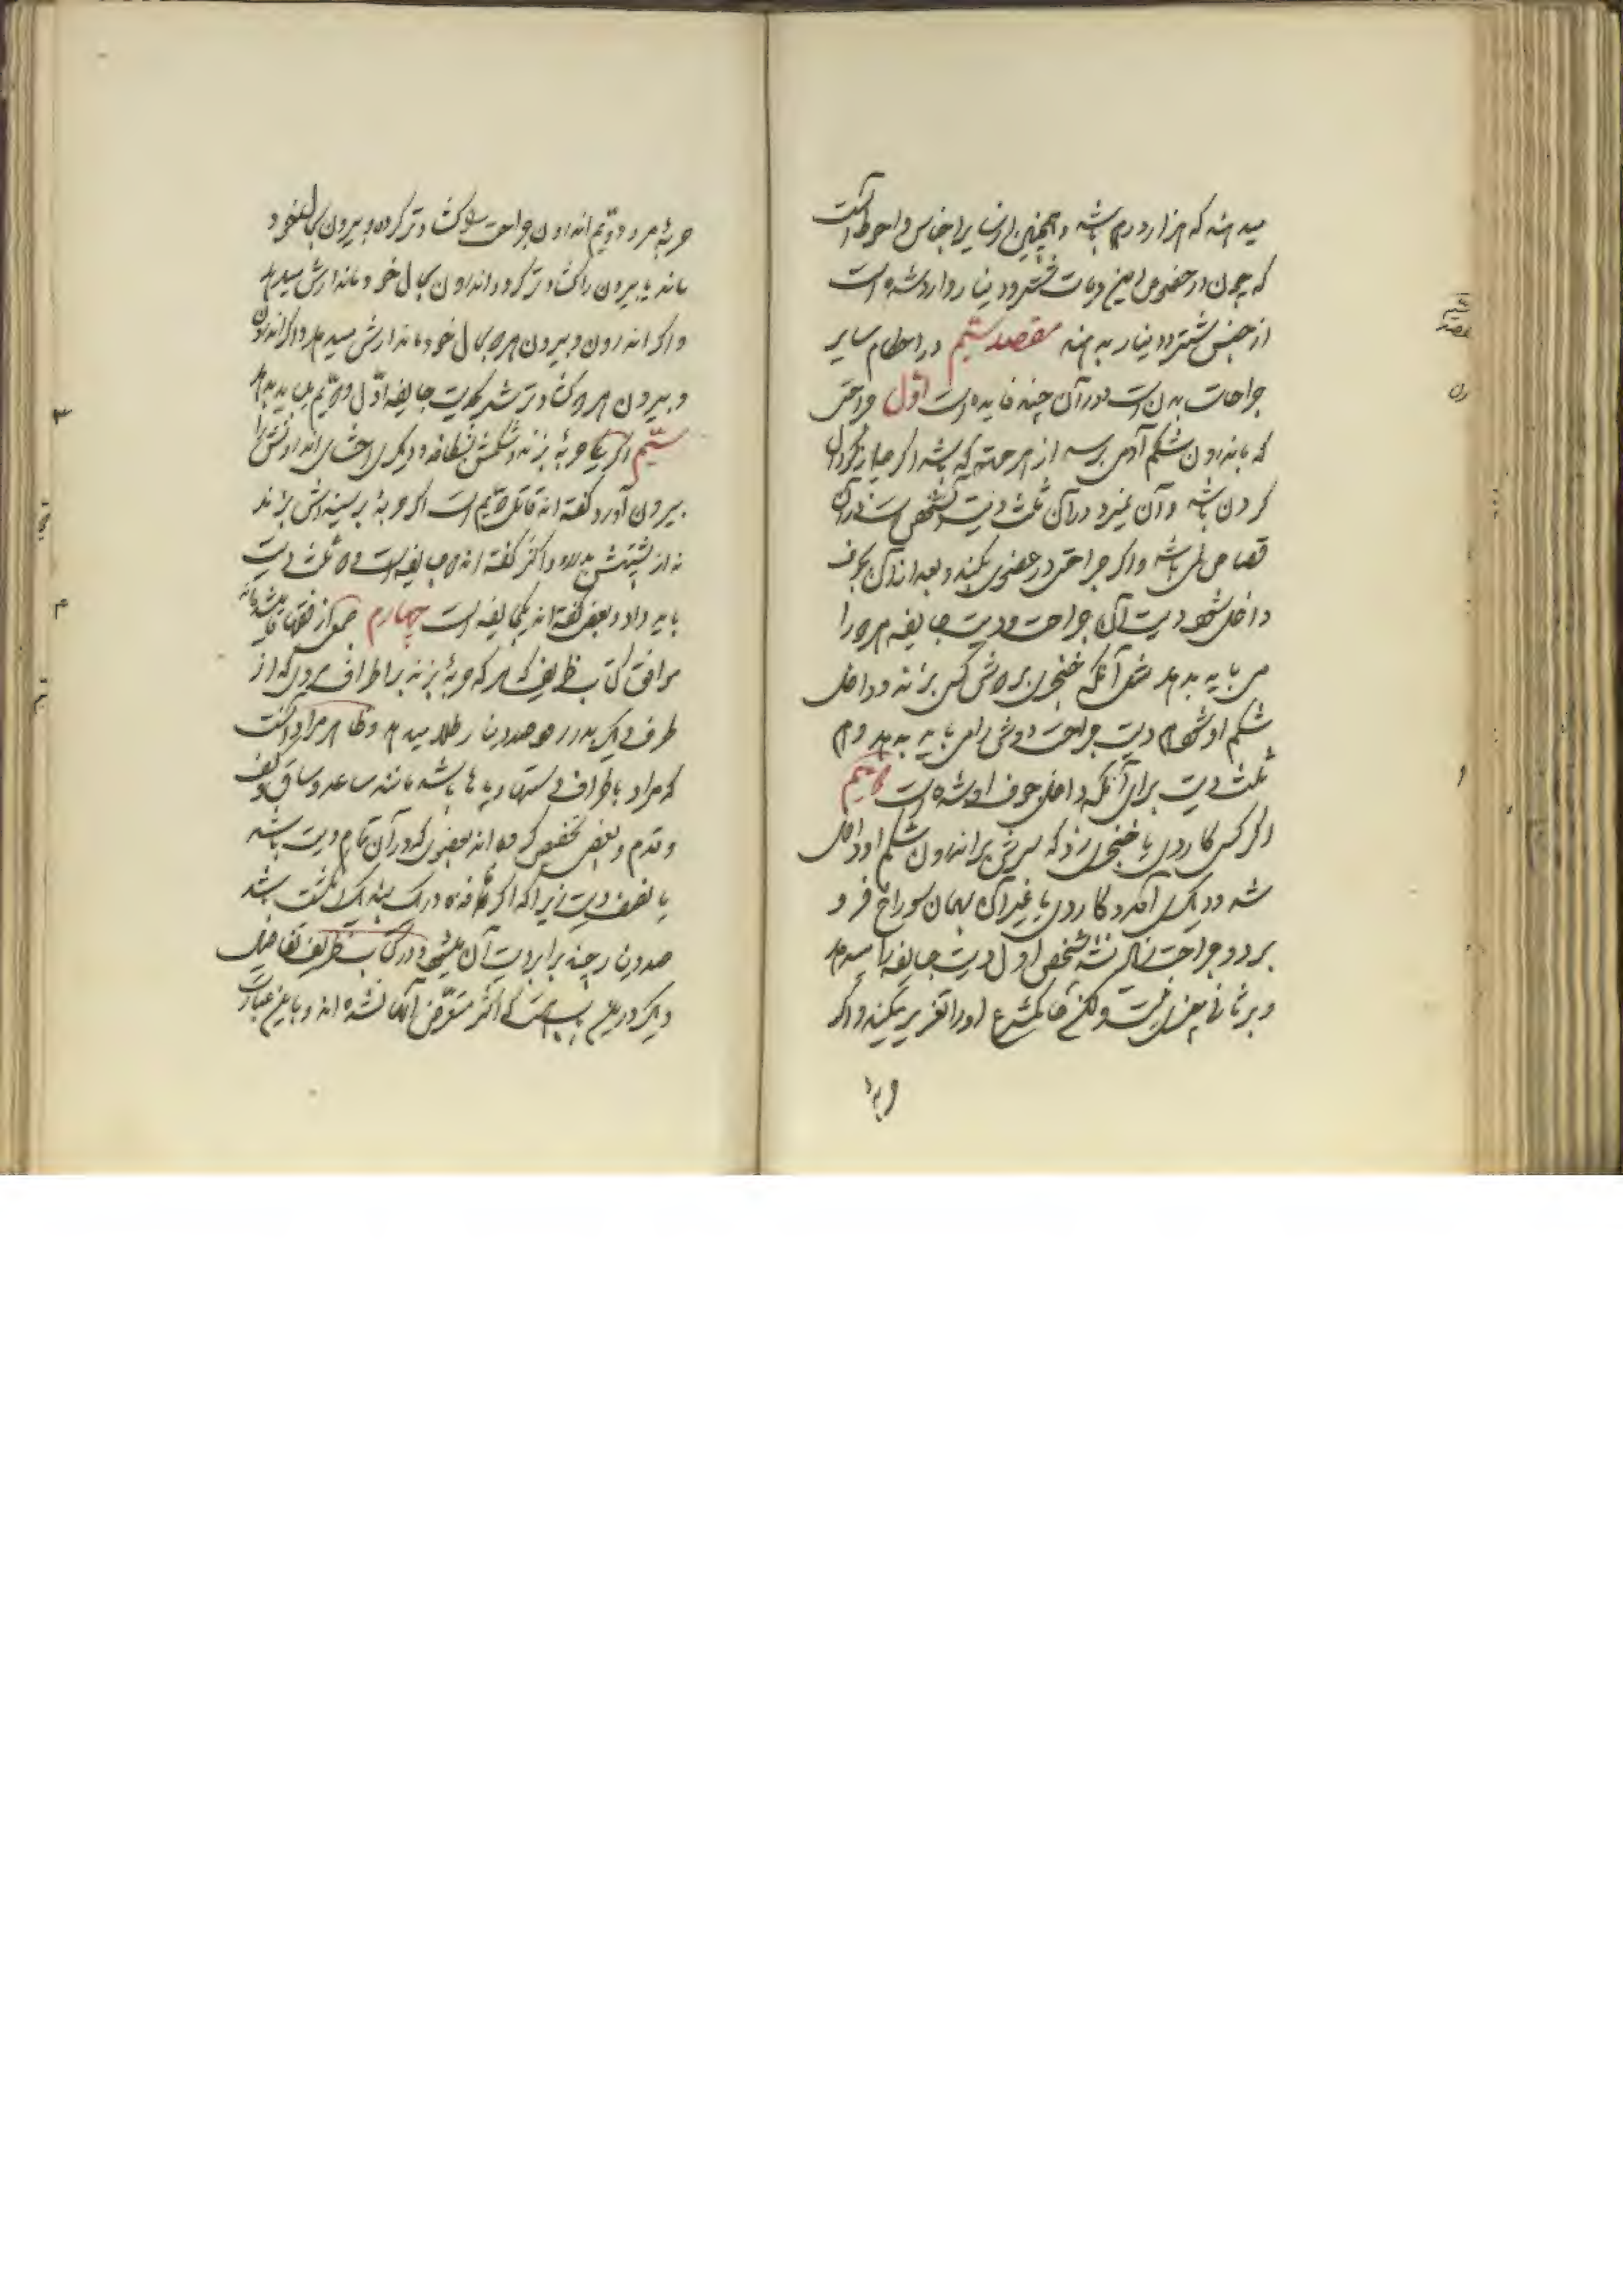 میدهند که هزار درهم باشد و همچنین از سایر اجناس و احوط آنست
که چون در خصوص این دیات شتر و دینار وارد شده است
از جنس شتر و دینار بدهند مقصد سیم در احکام سایر
جراحات بدن است و در آن چند فایده است اول جراحتی
که باندرون شکم آدمی برسد از هر جهتی که باشد اگر چه از گودال
گردن باشد و آن نمیرد در آن ثلث دیت آن شخص است و در آن
قصاص نمی باشد و اگر جراحتی در عضوی بکند و بعد از آن بجوف
داخل شود دیت آن جراحت و دیت جایفه هر دو را
می باید بدهد مثل آنکه خنجری بر دوش کسی بزند و داخل
شکم او شود هم دیت جراحت دوش را می باید بدهد و هم
ثلث دیت برای آنکه داخل جوف او شده است دویم
اگر کسی کاردی یا خنجری زد که سرش بر اندرون شکم او داخل
شد و دیگری آمد و کاردی یا غیر آن بهمان سوراخ فرو
برد و جراحت زیاده نشد شخص اول دیت جایفه را میدهد
و بر ثانی چیزی نیست ولکن حاکم شرع او را تعزیر میکند و اگر
حربه مرد دویم اندرون جراحت را گشاده تر کرده و بیرون بحال خود
ماند یا بیرون را گشاده تر کرد و اندرون بحال خود ماند ارش میدهد
و اگر اندرون و بیرون هر دو بحال خود ماند ارش میدهد و اگر اندرون
و بیرون هر دو گشاده تر شد دیت جایفه اول و دویم می باید بدهد
سیم اگر یکی حربه بزند و شکمش بشکافد و دیگری احشای اندرونش را
بیرون آورد گفته اند قاتل دویم است اگر حربه بر سینه اش بزند
که از پشتش بدر رود اکثر گفته اند دو جایفه است و دو ثلث دیت
باید داد و بعضی گفته اند یک جایفه است چهارم جمعی از فقها قایل شده اند
موافق کتاب ظریف که هر که حربه بزند بر اطراف مردی که از
طرف دیگر بدر رود صد دینار طلا میدهد و ظاهر مراد آنست
که مراد باطراف دستها و پاها باشد مانند ساعد و ساق و کف
و قدم و بعضی تخصیص کرده اند بعضوی که در آن تمام دیت باشد
یا نصف دیت زیرا که اگر نافذه در یک بند یک انگشت باشد
صد دینار چند برابر دیت آن میشود و در کتاب ظریف تفاصیل
دیگر در این باب هست که اکثر متعرض آنها نشده اند و باین عبارت